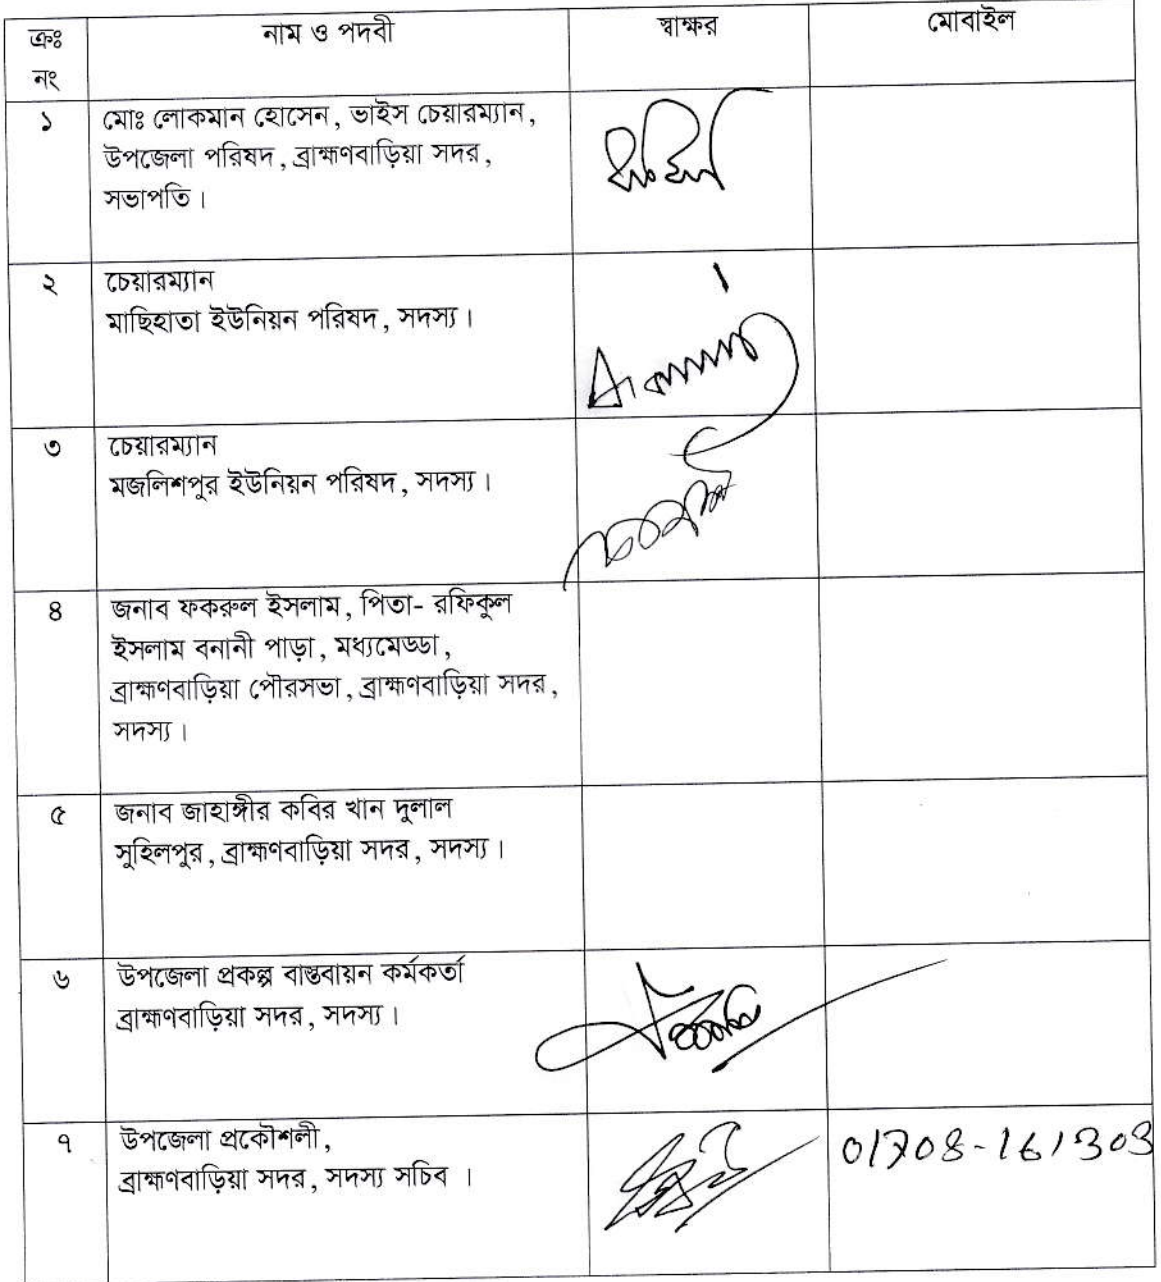 ক্রঃ নং নাম ও পদবী স্বাক্ষর মোবাইল
১ মোঃ লোকমান হোসেন, ভাইস চেয়ারম্যান,
উপজেলা পরিষদ, ব্রাহ্মণবাড়িয়া সদর,
সভাপতি।
২ চেয়ারম্যান
মাছিহাতা ইউনিয়ন পরিষদ, সদস্য।
৩ চেয়ারম্যান
মজলিশপুর ইউনিয়ন পরিষদ, সদস্য।
৪ জনাব ফকরুল ইসলাম, পিতা- রফিকুল
ইসলাম বনানী পাড়া, মধ্যমেড্ডা,
ব্রাহ্মণবাড়িয়া পৌরসভা, ব্রাহ্মণবাড়িয়া সদর,
সদস্য।
৫ জনাব জাহাঙ্গীর কবির খান দুলাল
সুহিলপুর, ব্রাহ্মণবাড়িয়া সদর, সদস্য।
৬ উপজেলা প্রকল্প বাস্তবায়ন কর্মকর্তা
ব্রাহ্মণবাড়িয়া সদর, সদস্য।
৭ উপজেলা প্রকৌশলী,
ব্রাহ্মণবাড়িয়া সদর, সদস্য সচিব ।
01708-161303